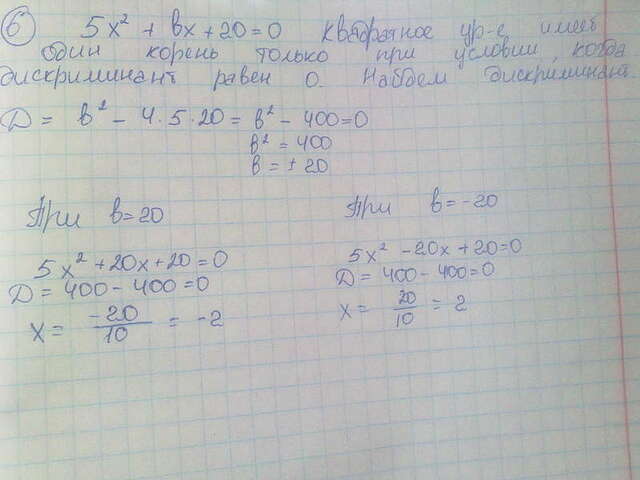 6 5x² + вx + 20 = 0 Квадратное ур-е имеет
один корень только при условии, когда
дискриминант равен 0. Найдем дискриминант
D = в² - 4·5·20 = в² - 400 = 0
в² = 400
в = ± 20
При в = 20
5x² + 20x + 20 = 0
D = 400 - 400 = 0
x = -20/10 = -2
При в = -20
5x² - 20x + 20 = 0
D = 400 - 400 = 0
x = 20/10 = 2